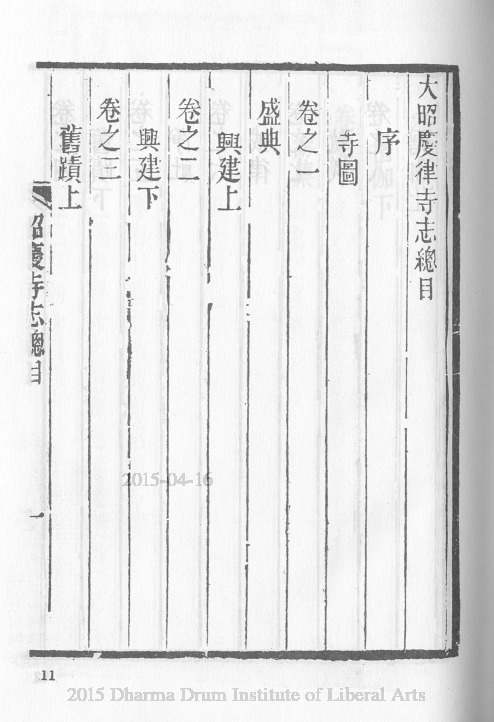 大昭慶律寺志總目
序
寺圖
卷之一
盛典
興建上
卷之二
興建下
卷之三
舊蹟上
昭慶寺志總目
一
11
2015-04-16
2015 Dharma Drum Institute of Liberal Arts